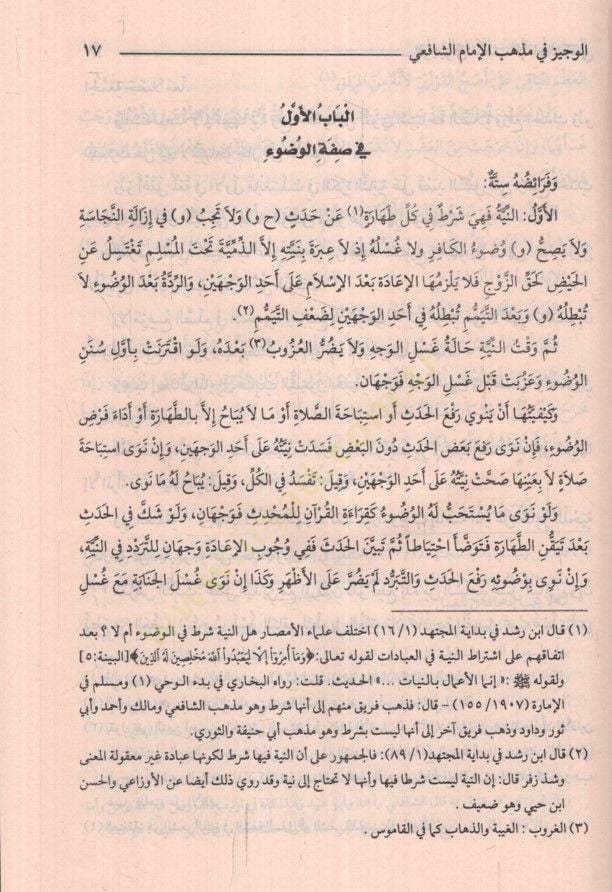 الوجيز في مذهب الإمام الشافعي ١٧
الْبَابُ الأَوَّلُ
في صِفَةِ الوُضُوء
وَفَرَائضُهُ سِتَّةٌ:
الأَوَّلُ: النِّيَّةُ فَهِيَ شَرْطٌ فِي كُلِّ طَهَارَةٍ(١) عَنْ حَدَثٍ (ح و) وَلاَ تَجِبُ (و) في إزَالَةِ النَّجَاسَةِ
وَلاَ يَصِحُّ (و) وُضُوءُ الكَافِرِ ولا غُسْلُهُ إذ لاَ عِبرَةَ بِنِيَّتِهِ إلاَّ الذِّمِّيَّةَ تَحْتَ المُسْلِمِ تَغْتَسِلُ عَنِ
الحَيْضِ لِحَقِّ الزَّوْجِ فَلاَ يَلْزَمُهَا الإعَادَةُ بَعْدَ الإسْلاَمِ عَلَى أَحَدِ الوَجْهَيْنِ، وَالرِّدَّةُ بَعْدَ الوُضُوءِ لاَ
تُبْطِلُهُ (و) وَبَعْدَ التَّيَمُّمِ تُبْطِلُهُ فِي أَحَدِ الوَجْهَيْنِ لِضَعْفِ التَّيَمُّمِ(٢).
ثُمَّ وَقْتُ النِّيَّةِ حَالَةُ غَسْلِ الوَجهِ وَلاَ يَضُرُّ العُزُوبُ(٣) بَعْدَهُ، وَلَو اقتَرَنَتْ بِأَوَّلِ سُنَنِ
الوُضُوءِ وَعَزُبَتْ قَبْلَ غَسْلِ الوَجْهِ فَوَجْهَانِ.
وَكَيْفِيَّتُهَا أَنْ يَنْوِي رَفْعَ الحَدَثِ أَو اسْتِبَاحَةَ الصَّلاَةِ أوْ مَا لاَ يُبَاحُ إلاَّ بالطَّهَارَةِ أَوْ أَدَاءَ فَرْضِ
الوُضُوءِ، فَإِنْ نَوَى رَفعَ بَعْضِ الحَدَثِ دُونَ البَعْضِ فَسَدَتْ نِيَّتُهُ عَلَى أَحَدِ الوَجهَينِ، وَإِنْ نَوَى اسْتِبَاحَةَ
صَلاَةٍ لاَ بِعَيْنِهَا صَحَّتْ نِيَّتُهُ عَلَى أَحَدِ الوَجْهَيْنِ، وَقِيلَ: تَفْسَدُ في الكُلِّ، وَقِيلَ: يُبَاحُ لَهُ مَا نَوَى.
وَلَوْ نَوَى مَا يُسْتَحَبُّ لَهُ الوُضُوءُ كَقِرَاءَةِ القُرْآنِ لِلْمُحْدِثِ فَوَجْهَانِ، وَلَوْ شَكَّ في الحَدَثِ
بَعْدَ تَيَقُّنِ الطَّهَارَةِ فَتَوَضَّأَ احْتِيَاطاً ثُمَّ تَبَيَّنَ الحَدَثَ فَفِي وُجُوبِ الإعَادَةِ وَجهَانِ لِلتَّرَدُّدِ فِي النِّيَّةِ،
وَإِنْ نَوَى بِوُضُوئِهِ رَفْعَ الحَدَثِ وَالتَّبَرُّدَ لَمْ يَضُرَّ عَلَى الأَظْهَرِ وَكَذَا إِنْ نَوَى غُسْلَ الجَنَابَةِ مَعَ غُسْلِ
(١) قال ابن رشد في بداية المجتهد (١٦/١) اختلف علماء الأمصار هل النية شرط في الوضوء أم لا ؟ بعد
اتفاقهم على اشتراط النية في العبادات لقوله تعالى: ﴿وَمَا أُمِرُوا إِلَّا لِيَعْبُدُوا اللَّهَ مُخْلِصِينَ لَهُ الدِّينَ﴾[البينة:٥]
ولقوله ﷺ: « إنما الأعمال بالنيات ...» الحديث. قلت: رواه البخاري في بدء الوحي (١) ومسلم في
الإمارة (١٥٥/١٩٠٧) – قال: فذهب فريق منهم إلى أنها شرط وهو مذهب الشافعي ومالك وأحمد وأبي
ثور وداود وذهب فريق آخر إلى أنها ليست بشرط وهو مذهب أبي حنيفة والثوري.
(٢) قال ابن رشد في بداية المجتهد(٨٩/١): فالجمهور على أن النية فيها شرط لكونها عبادة غير معقولة المعنى
وشذ زفر قال: إن النية ليست شرطا فيها وأنها لا تحتاج إلى نية وقد روي ذلك أيضا عن الأوزاعي والحسن
ابن حيي وهو ضعيف .
(٣) الغروب : الغيبة والذهاب كما في القاموس .